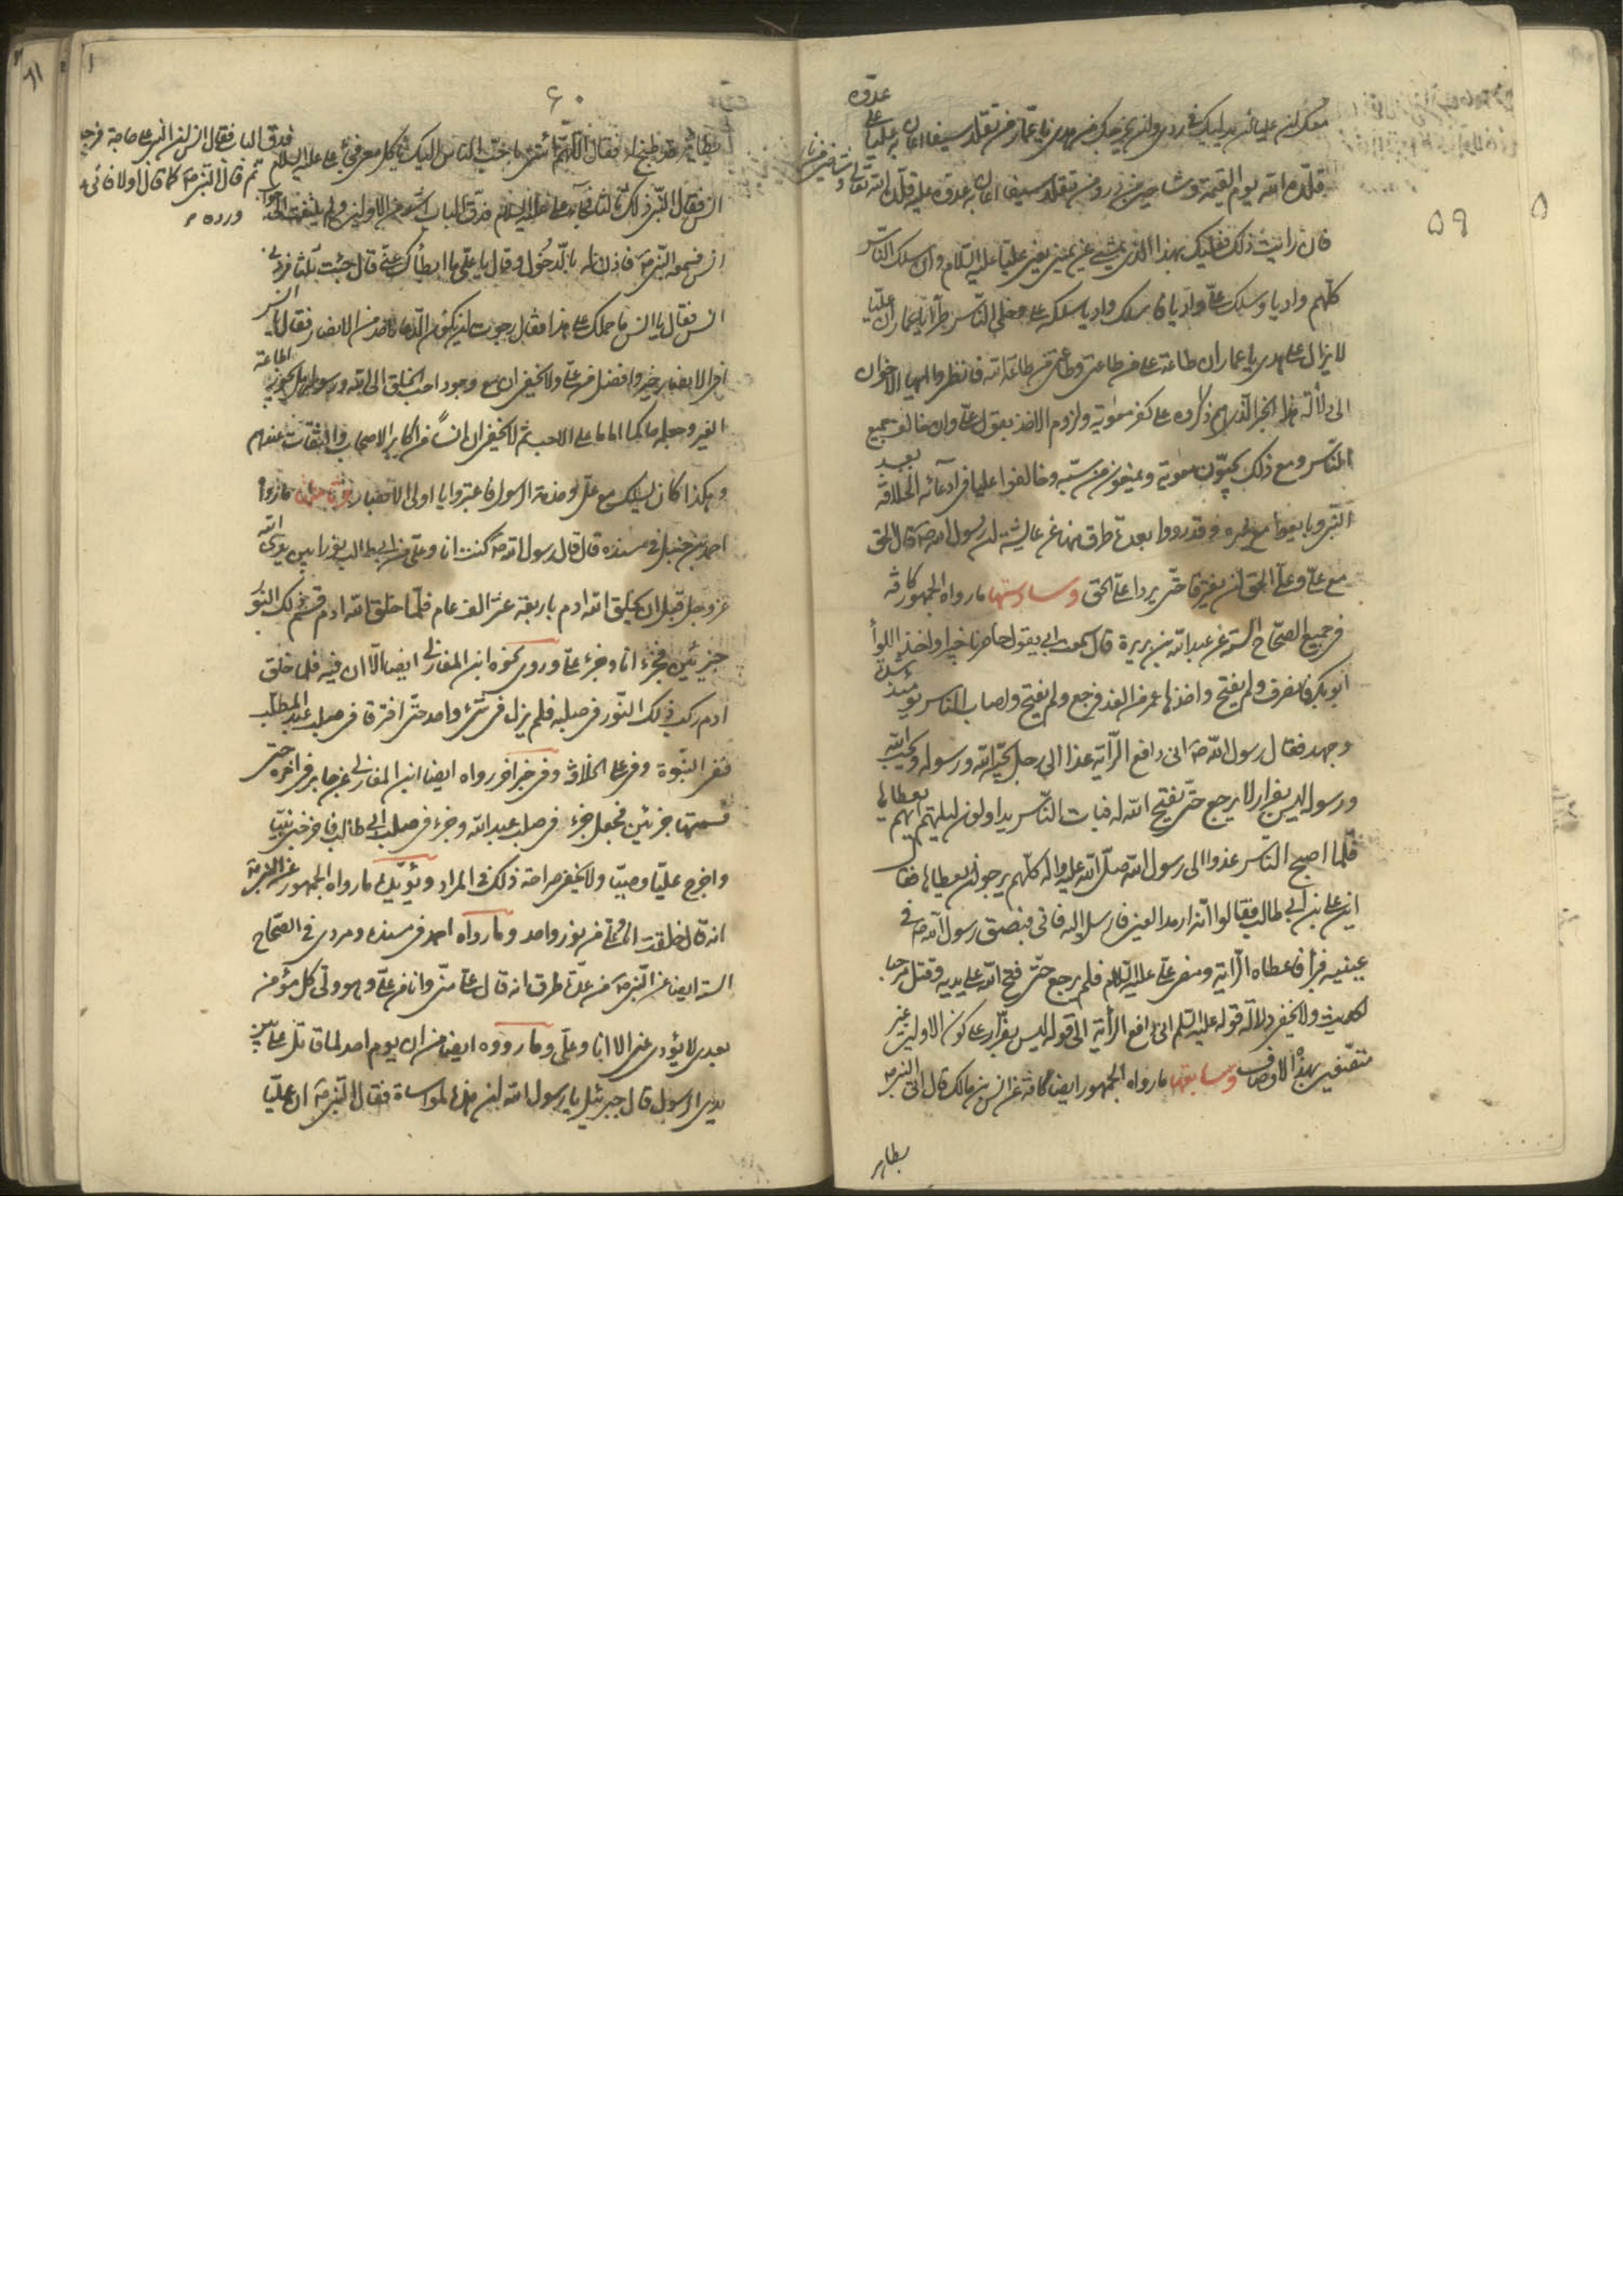 ٥٩
عدوه
معك ان عليا لن يدليك في ردى ولن يخرجك من هدى يا عمار من تقلد سيفا اعان به عليا على
قلده الله يوم القيمة وشاحين من در ومن تقلد سيفا اعان به عدو علي قلده الله تعالى وشاحين من نار
فان رايت ذلك فعليك بهذا الذي يمشي عن يميني يعني عليا عليه السلام وان سلك الناس
كلهم واديا وسلك علي واديا فاسلك واديا سلكه علي وخلي الناس طرا يا عمار ان عليا
لا يزال على هدى يا عمار ان طاعة علي من طاعتي وطاعتي من طاعة الله فانظروا ايها الاخوان
الى دلالة هذا الخبر الذي هم ذكروه على كفر معوية ولزوم الاخذ بقول علي وان خالف جميع
الناس ومع ذلك يحبون معوية ويمنعون من سبه وخالفوا عليا في ادعائه الخلافة بعد
النبي وبايعوا مع غيره وقد رووا بعدة طرق منها عن عايشة ان رسول الله ص قال الحق
مع علي وعلي مع الحق لن يفترقا حتى يردا علي الحق وسادستها ما رواه الجمهور كافة
في جميع الصحاح الستة عن عبدالله بن بريرة قال سمعت ابي يقول حاصرنا خيبر واخذ اللوا
ابو بكر فانصرف ولم يفتح واخذها عمر من الغد فرجع ولم يفتح واصاب الناس يومئذ شدة
وجهد فقال رسول الله ص اني دافع الراية غدا الى رجل يحبه الله ورسوله ويحب الله
ورسوله ليس بفرار لا يرجع حتى يفتح الله له فبات الناس يداولون ليلتهم ايهم يعطاها
فلما اصبح الناس غدوا الى رسول الله صلى الله عليه واله كلهم يرجو ان يعطاها فقال
اين علي بن ابي طالب فقالوا انه ارمد العين فارسل اليه فاتى فبصق رسول الله ص في
عينيه فبرأ فاعطاه الراية ومضى علي عليه السلام فلم يرجع حتى فتح الله على يديه وقتل مرحبا
الحديث ولا يخفى دلالة قوله عليه السلم اني دافع الراية الى قوله ليس بفرار على كون الاولين غير
متصفين بهذه الاوصاف وسابعتها ما رواه الجمهور ايضا كافة عن انس بن مالك قال اتى النبي ص
بطاير
٦١
٦٠
بطاير قد طبخ له فقال اللهم ائتني باحب الناس اليك ياكل معي فجاء علي عليه السلام
فدق الباب فقال انس ان النبي على حاجة فرجع
ثم قال النبي ص كما قال اولا فاتى
ورده
انس فقال النبي ذلك ثالثا فجاء علي عليه السلام فدق الباب اشد من الاولين
انس فسمعه النبي ص فاذن له بالدخول وقال يا علي ما ابطأك عني قال جئت ثلثا فردني
انس فقال يا انس ما حملك على هذا فقال رجوت ان يكون الدعا لاحد من الانصار فقال يا انس
أفي الانصار خير وافضل من علي ولا يخفى ان مع وجود احب الخلق الى الله ورسوله هل يجوز اطاعة
الغير وجعله حاكما اماما على الاحب ثم لا يخفى ان انسا من اكابر الاصحاب والثقات عندهم
وهكذا كان يسلك مع علي وخدمة الرسول فاعتبروا يا اولي الابصار وثامنتها ما رواه
احمد بن حنبل في مسنده قال قال رسول الله ص كنت انا وعلي بن ابي طالب نورا بين يدي الله
عز وجل قبل ان يخلق الله ادم باربعة عشر الف عام فلما خلق الله ادم قسم ذلك النور
جزئين فجزء انا وجزء علي وروى نحوه ابن المغازلي ايضا الا ان فيه فلما خلق
ادم ركب ذلك النور في صلبه فلم يزل في شيء واحد حتى افترقا في صلب عبد المطلب
ففي النبوة وفي علي الخلافة وفي خبر اخر رواه ايضا ابن المغازلي عن جابر في اخره حتى
قسمها جزئين فجعل جزء في صلب عبد الله وجزء في صلب ابي طالب فاخرجني نبيا
واخرج عليا وصيا ولا يخفى صراحة ذلك في المراد ويؤيدها ما رواه الجمهور عن النبي ص
انه قال خلقت انا وعلي من نور واحد وما رواه احمد في مسنده ومروى في الصحاح
الستة ايضا عن النبي ص من عدة طرق انه قال علي مني وانا من علي وهو ولي كل مؤمن
بعدي لا يؤدي عني الا انا وعلي وما رووه ايضا من ان يوم احد لما قاتل علي بين
يدي الرسول قال جبرئيل يا رسول الله ان هذه لمواساة فقال النبي ص ان عليا